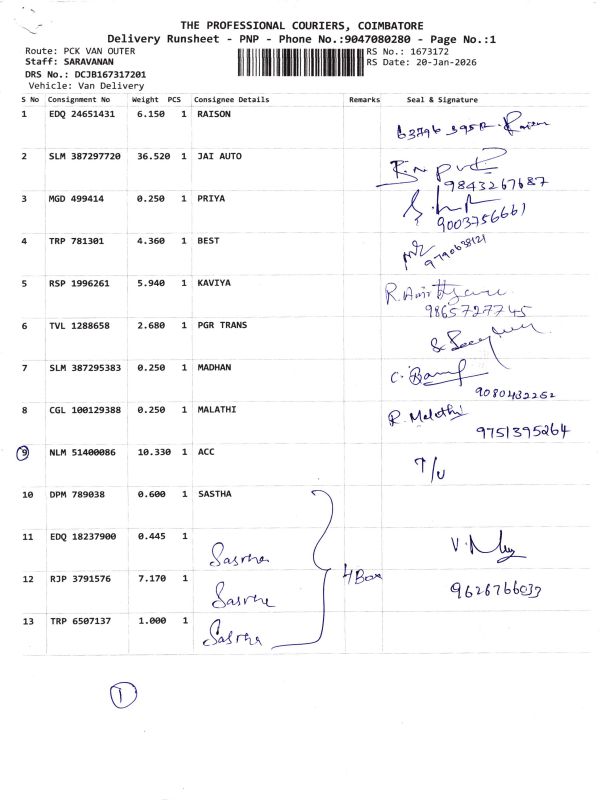 THE PROFESSIONAL COURIERS, COIMBATORE
Delivery Runsheet - PNP - Phone No.:9047080280 - Page No.:1
Route: PCK VAN OUTER RS No.: 1673172
Staff: SARAVANAN RS Date: 20-Jan-2026
DRS No.: DCJB167317201
Vehicle: Van Delivery
S No Consignment No Weight PCS Consignee Details Remarks Seal & Signature
1 EDQ 24651431 6.150 1 RAISON
2 SLM 387297720 36.520 1 JAI AUTO
9843267687
3 MGD 499414 0.250 1 PRIYA
9003756661
4 TRP 781301 4.360 1 BEST
5 RSP 1996261 5.940 1 KAVIYA
9865727745
6 TVL 1288658 2.680 1 PGR TRANS
7 SLM 387295383 0.250 1 MADHAN
9080432252
8 CGL 100129388 0.250 1 MALATHI R. Malathi
9751395264
9 NLM 51400086 10.330 1 ACC T/U
10 DPM 789038 0.600 1 SASTHA
11 EDQ 18237900 0.445 1 Sastha
12 RJP 3791576 7.170 1 Sastha 4 Box 9626766037
13 TRP 6507137 1.000 1 Sastha
1